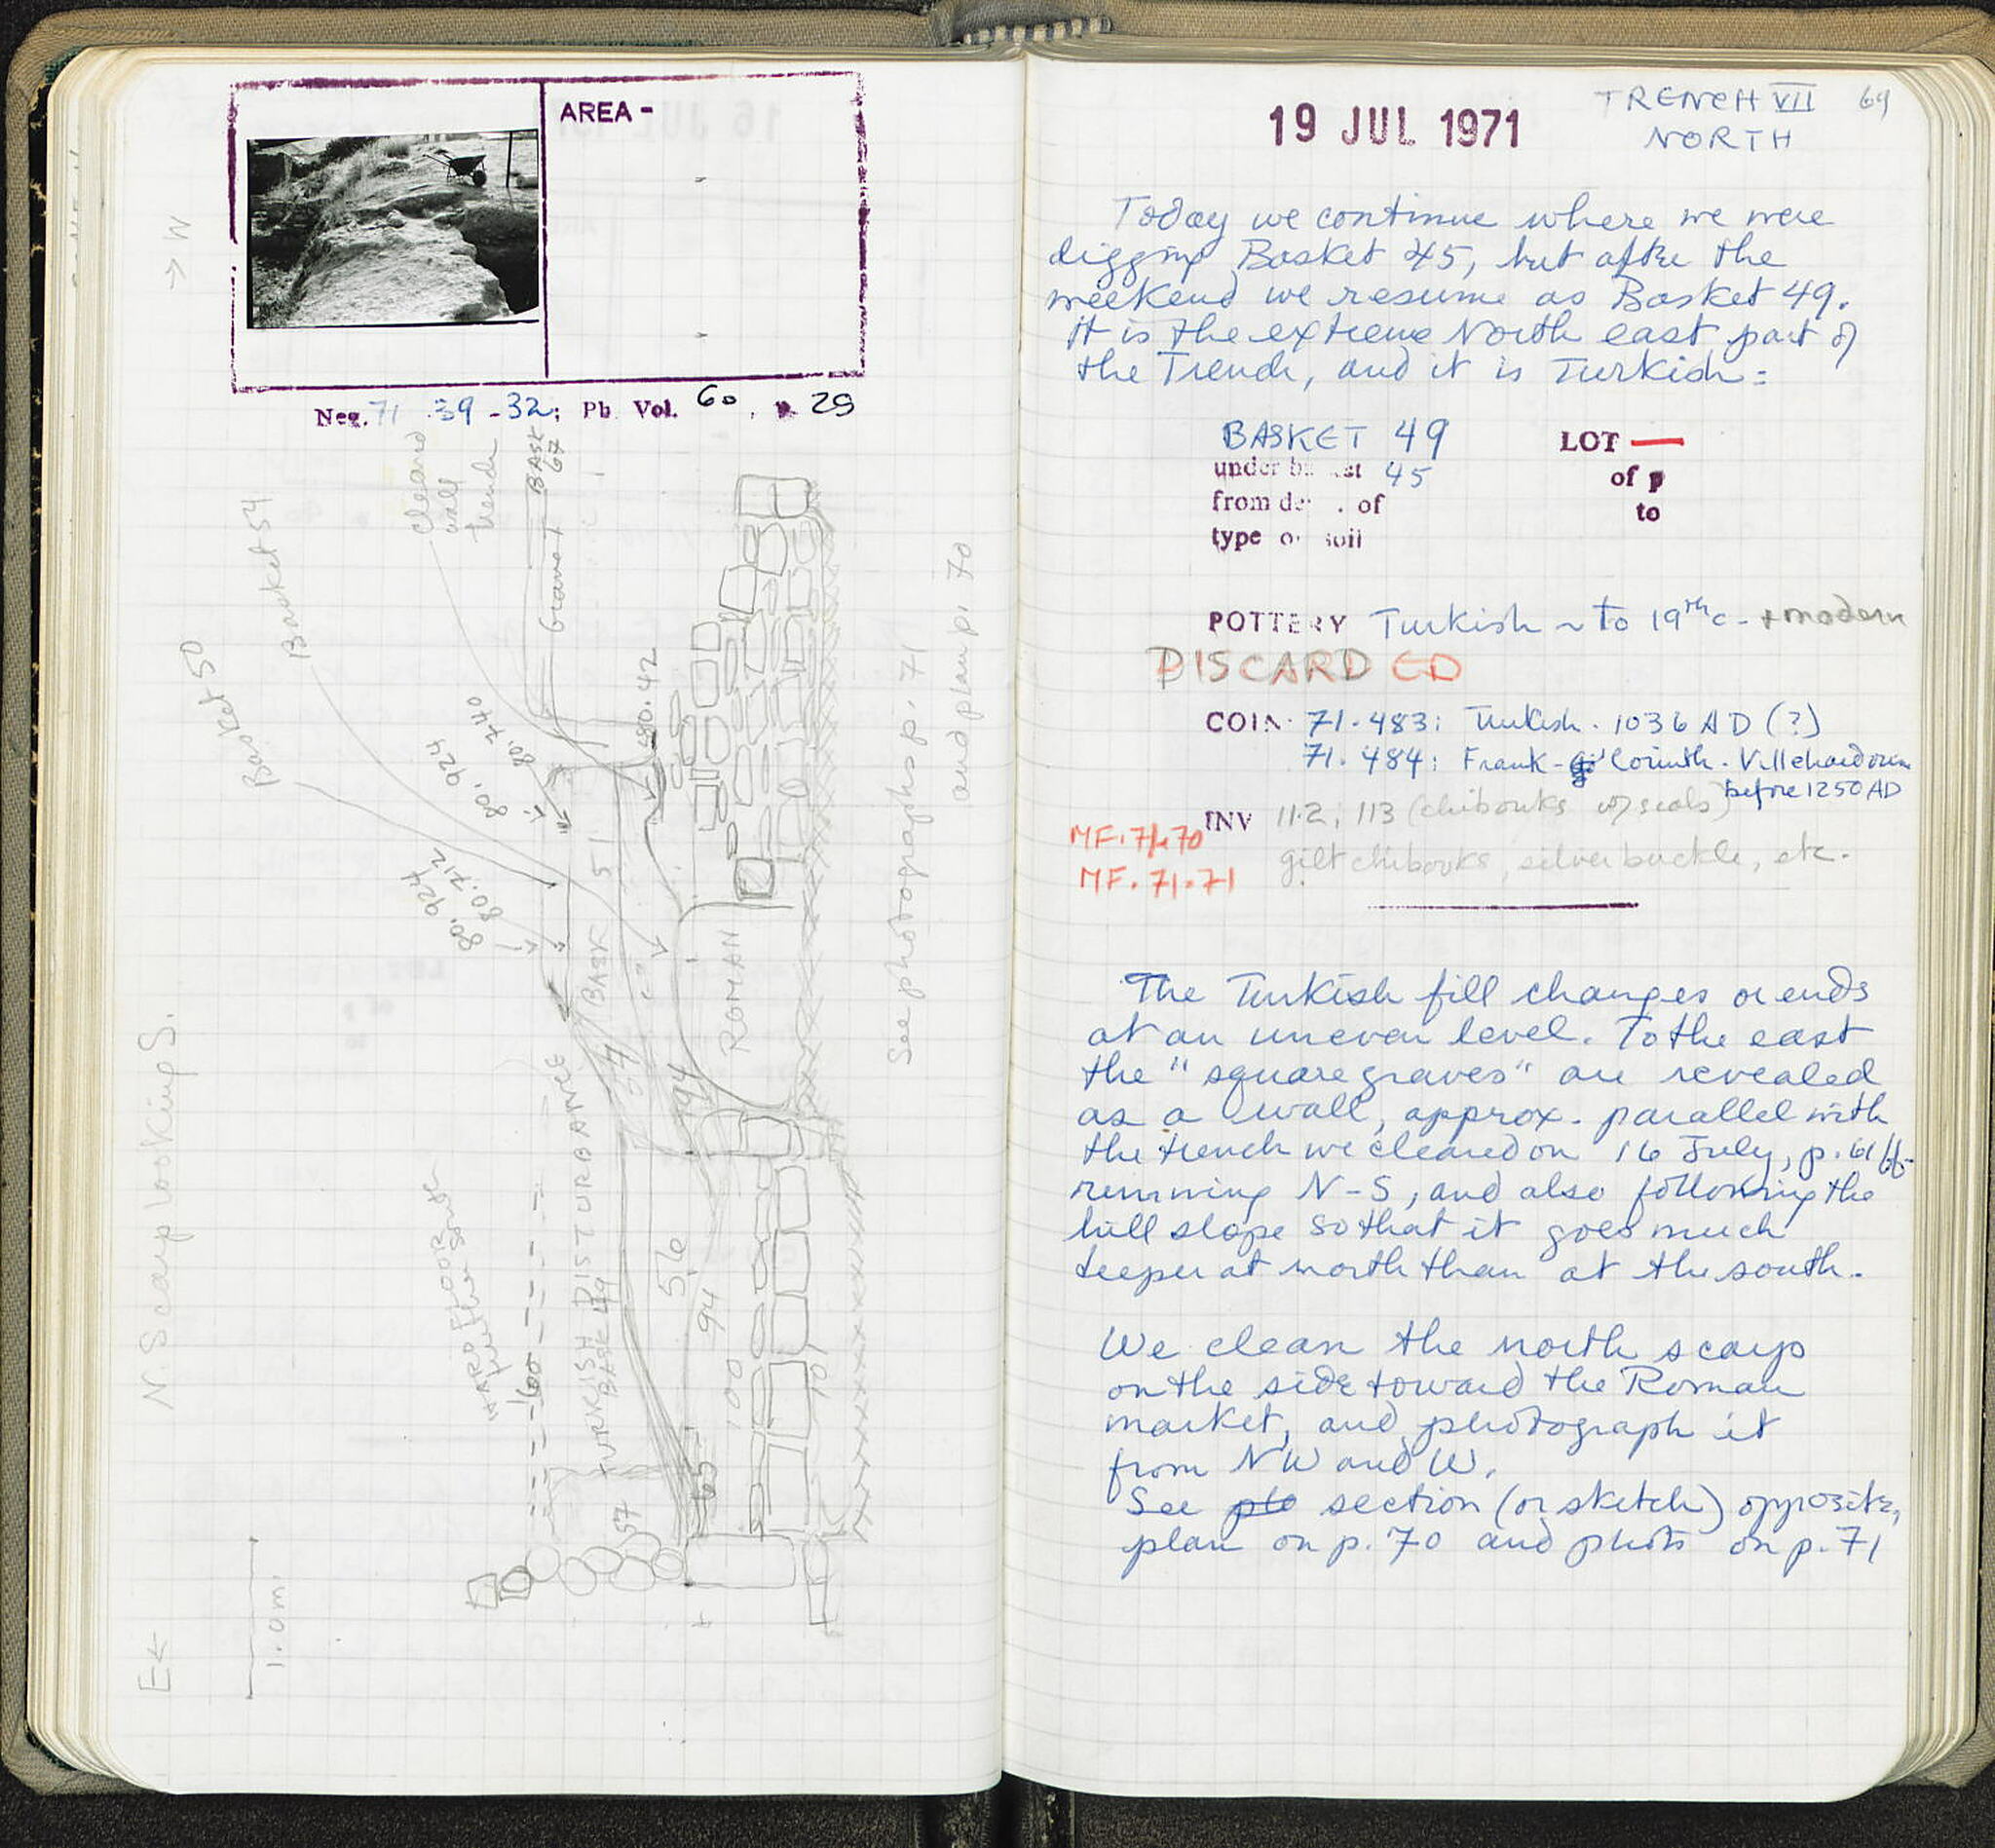 AREA -
Neg. 71 39 - 32; Ph Vol. 60, p. 29
→ W
Basket 50
Basket 54
Cleaned
wall
trench
BASK
67
Grave T
80.42
80.740
80.924
80.924
80.712
BASK 51
54
ROMAN
194
TURKISH DISTURBANCE
BASK 49
HARD FLOOR
further South
100
56
94
100
101
65
57
See photographs p. 71
and plan p. 70
N. Scarp looking S.
E ←
1.0 m.
19 JUL 1971
TRENCH VII 69
NORTH
Today we continue where we were
digging Basket 45, but after the
weekend we resume as Basket 49.
It is the extreme North east part of
the Trench, and it is Turkish:
BASKET 49 LOT —
under basket 45 of p
from de of to
type of soil
POTTERY Turkish ~ to 19th c - + modern
DISCARDED
COIN 71.483: Turkish. 1036 AD (?)
71.484: Frank - Corinth. Villehardouin
before 1250 AD
INV 112; 113 (chibouks w/ seals)
MF. 71.70
gilt chibouks, silver buckle, etc.
MF. 71.71
The Turkish fill changes or ends
at an uneven level. To the east
the "square graves" are revealed
as a wall, approx. parallel with
the trench we cleared on 16 July, p. 61 ff.
running N-S, and also following the
hill slope so that it goes much
deeper at north than at the south.
We clean the north scarp
on the side toward the Roman
market, and photograph it
from NW and W.
See section (or sketch) opposite,
plan on p. 70 and photos on p. 71